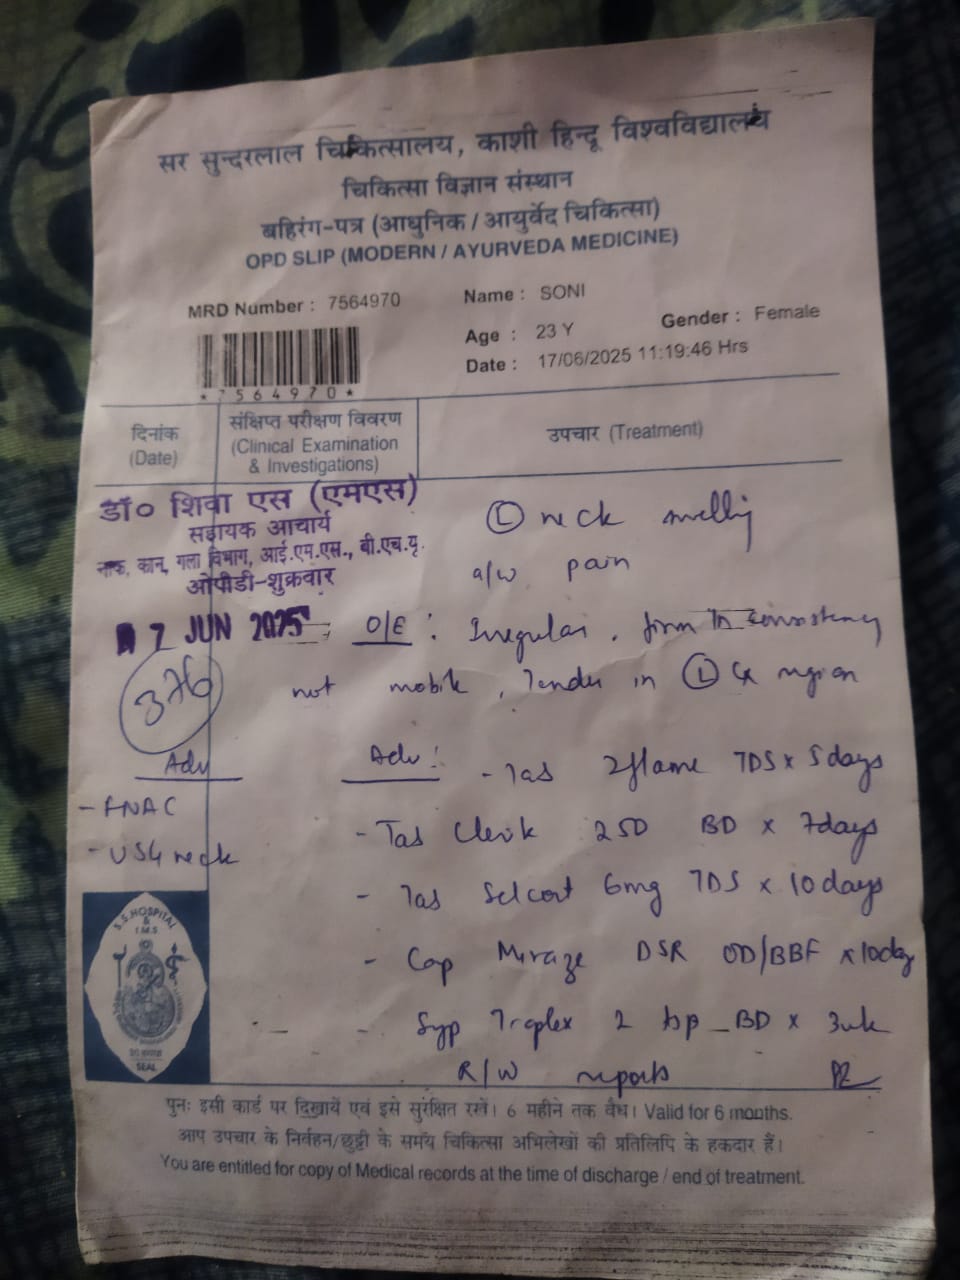 सर सुन्दरलाल चिकित्सालय, काशी हिन्दू विश्वविद्यालय
चिकित्सा विज्ञान संस्थान
बहिरंग-पत्र (आधुनिक / आयुर्वेद चिकित्सा)
OPD SLIP (MODERN / AYURVEDA MEDICINE)
MRD Number : 7564970
Name : SONI
Age : 23 Y
Gender : Female
Date : 17/06/2025 11:19:46 Hrs
*7564970*
दिनांक
(Date)
संक्षिप्त परीक्षण विवरण
(Clinical Examination
& Investigations)
उपचार (Treatment)
डॉ० शिवा एस (एमएस)
सहायक आचार्य
नाक, कान, गला विभाग, आई.एम.एस., बी.एच.यू.
ओपीडी-शुक्रवार
7 JUN 2025
376
Ⓛ neck swelling
a/w pain
O/E : Irregular, firm in consistency
not mobile, tender in Ⓛ Cx region
Adv
- FNAC
- USG neck
Adv :
- Tab Zflame TDS x 5 days
- Tab 250 BD x 7 days
- Tab Selcort 6mg TDS x 10 days
- Cap DSR OD/BBF x 10 day
- Syp 2 tsp BD x 3 wk
R/W reports
S.S. HOSPITAL
&
I.M.S
SEAL
पुनः इसी कार्ड पर दिखायें एवं इसे सुरक्षित रखें। 6 महीने तक वैध। Valid for 6 months.
आप उपचार के निर्वहन/छुट्टी के समय चिकित्सा अभिलेखों की प्रतिलिपि के हकदार हैं।
You are entitled for copy of Medical records at the time of discharge / end of treatment.